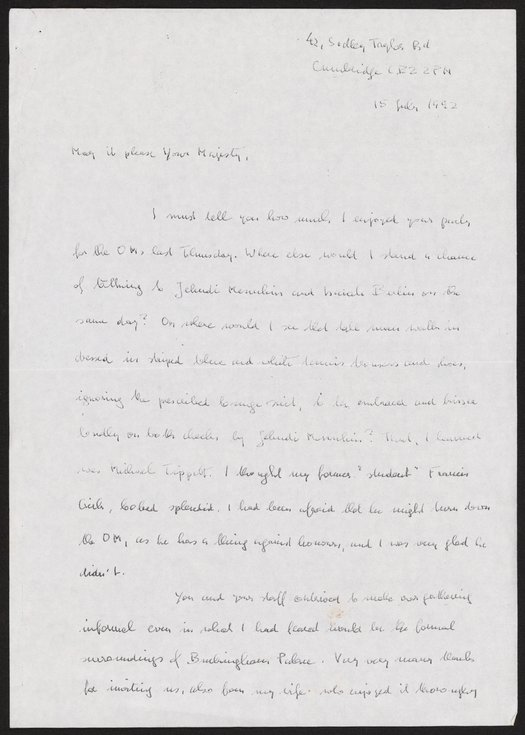 42, Sedley Taylor Rd
Cambridge CB2 2PN
15 July 1992
May it please Your Majesty,
I must tell you how much I enjoyed your party
for the OMs last Thursday. Where else would I stand a chance
of talking to Jehudi Menuhin and Isaiah Berlin on the
same day? Or where would I see that tall man walk in
dressed in striped blue and white tennis trousers and shoes,
ignoring the prescribed lounge suit, to be embraced and kissed
fondly on both cheeks by Jehudi Menuhin? That, I learned
was Michael Tippett. I thought my former "student" Francis
Crick, looked splendid. I had been afraid that he might turn down
the OM, as he has a thing against honours, and I was very glad he
didn't.
You and your staff contrived to make our gathering
informal even in what I had feared would be the formal
surroundings of Buckingham Palace. Very very many thanks
for inviting us, also from my wife who enjoyed it thoroughly